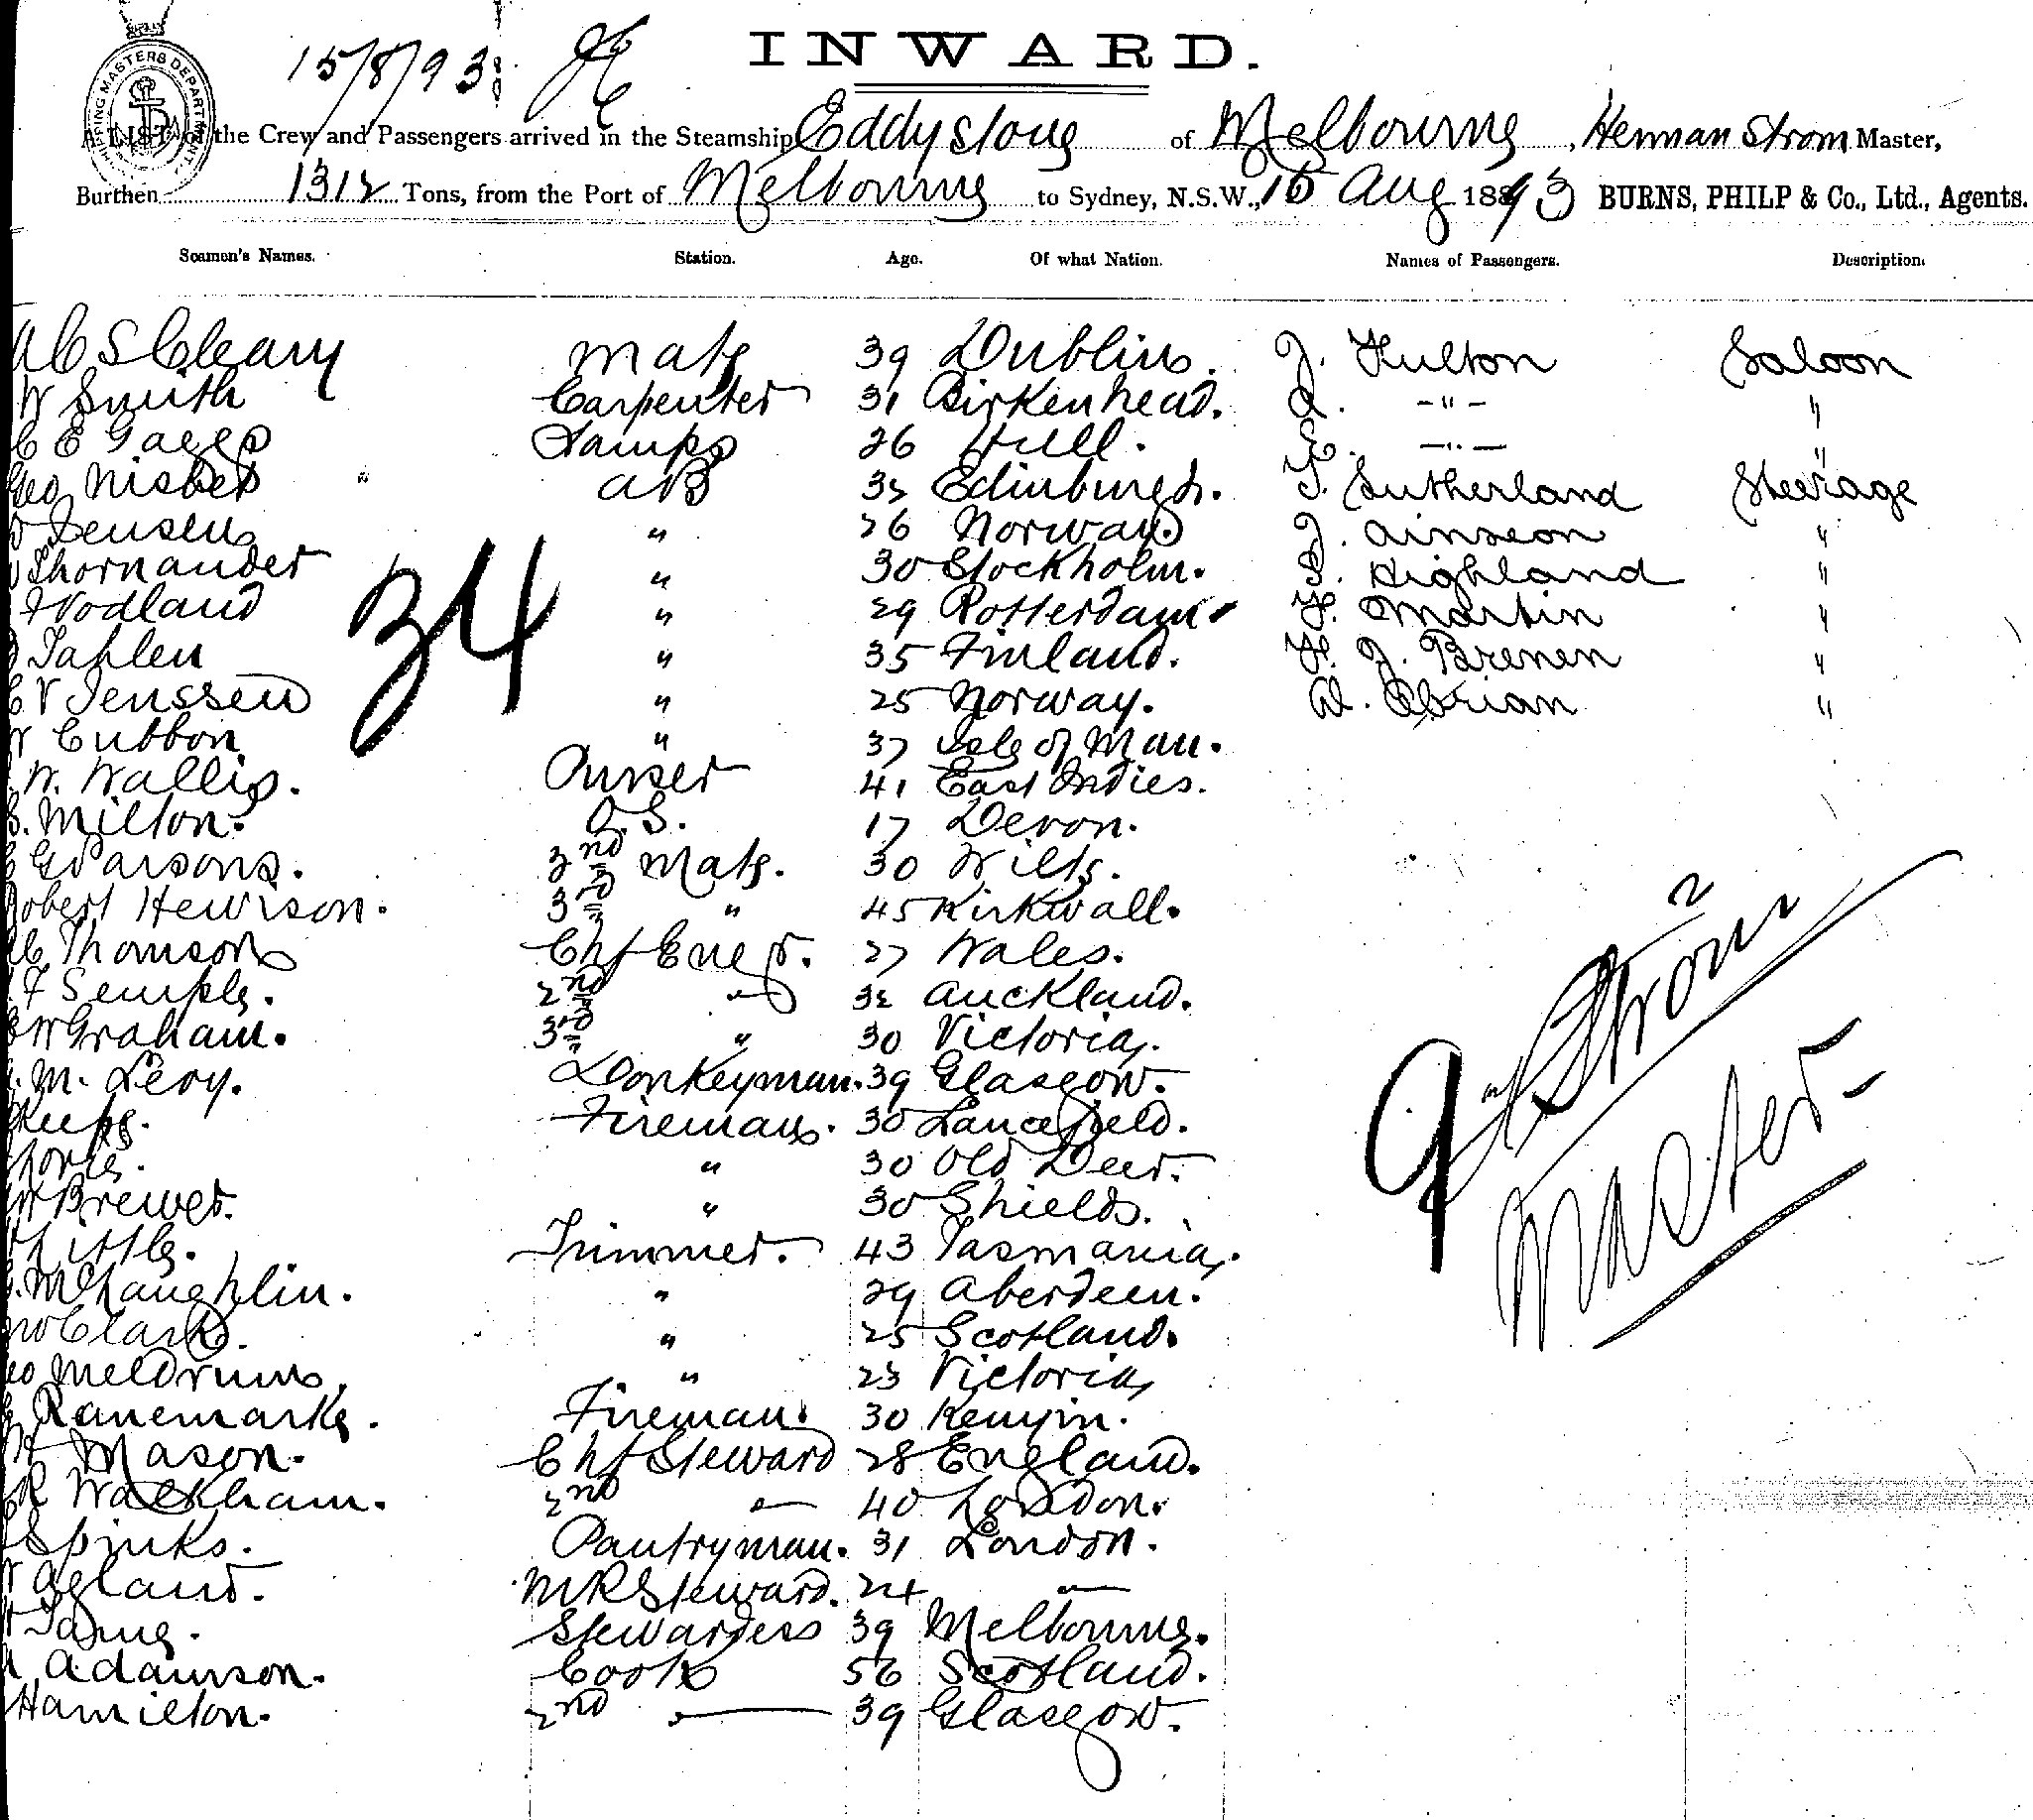 15/8/93
INWARD.
SHIPPING MASTERS DEPARTMENT
A LIST of the Crew and Passengers arrived in the Steamship Eddystone of Melbourne, Herman Strom Master,
Burthen 1312 Tons, from the Port of Melbourne to Sydney, N.S.W., 15 Aug 1893 BURNS, PHILP & Co., Ltd., Agents.
Seamen's Names. Station. Age. Of what Nation. Names of Passengers. Description.
S Cleary Mate 39 Dublin. J. Fulton Saloon
W Smith Carpenter 31 Birkenhead. -"- "
C E Lamps 26 Hull. E. -"- "
Geo Nisbet AB 32 Edinburgh. T. Sutherland Steerage
Jensen " 26 Norway. J. Ainseon "
Thornander " 30 Stockholm. Highland "
Wodland " 29 Rotterdam F. Martin "
Tahlen " 35 Finland. F. J. Brenen "
C V Jenssen " 25 Norway. D. Obrian "
34
Cubbon " 37 Isle of Man.
W. Wallis. Purser 41 East Indies.
Milton. O.S. 17 Devon.
G Parsons. 2nd Mate. 30 Wilts.
Robert Hewison. 3rd " 45 Kirkwall.
Thomson Chf Engr. 27 Wales.
F Semple. 2nd " 32 Auckland.
W Graham. 3rd " 30 Victoria.
M. Levy. Donkeyman. 39 Glasgow.
Fireman. 30 Lancefield.
" 30 Old Deer.
Brewer. " 30 Shields.
Little. Trimmer. 43 Tasmania.
McLaughlin. " 29 Aberdeen.
Clark. " 25 Scotland.
Meldrum. " 23 Victoria
Ranemarke. Fireman. 30
Mason. Chf Steward 28 England.
R Walkham. 2nd " 40 London.
Spinks. Pantryman. 31 London.
Agland. MRSteward. 24 "
Stewardess 39 Melbourne.
Adamson. Cook 56 Scotland.
Hamilton. 2nd " 39 Glasgow.
Strom
Master